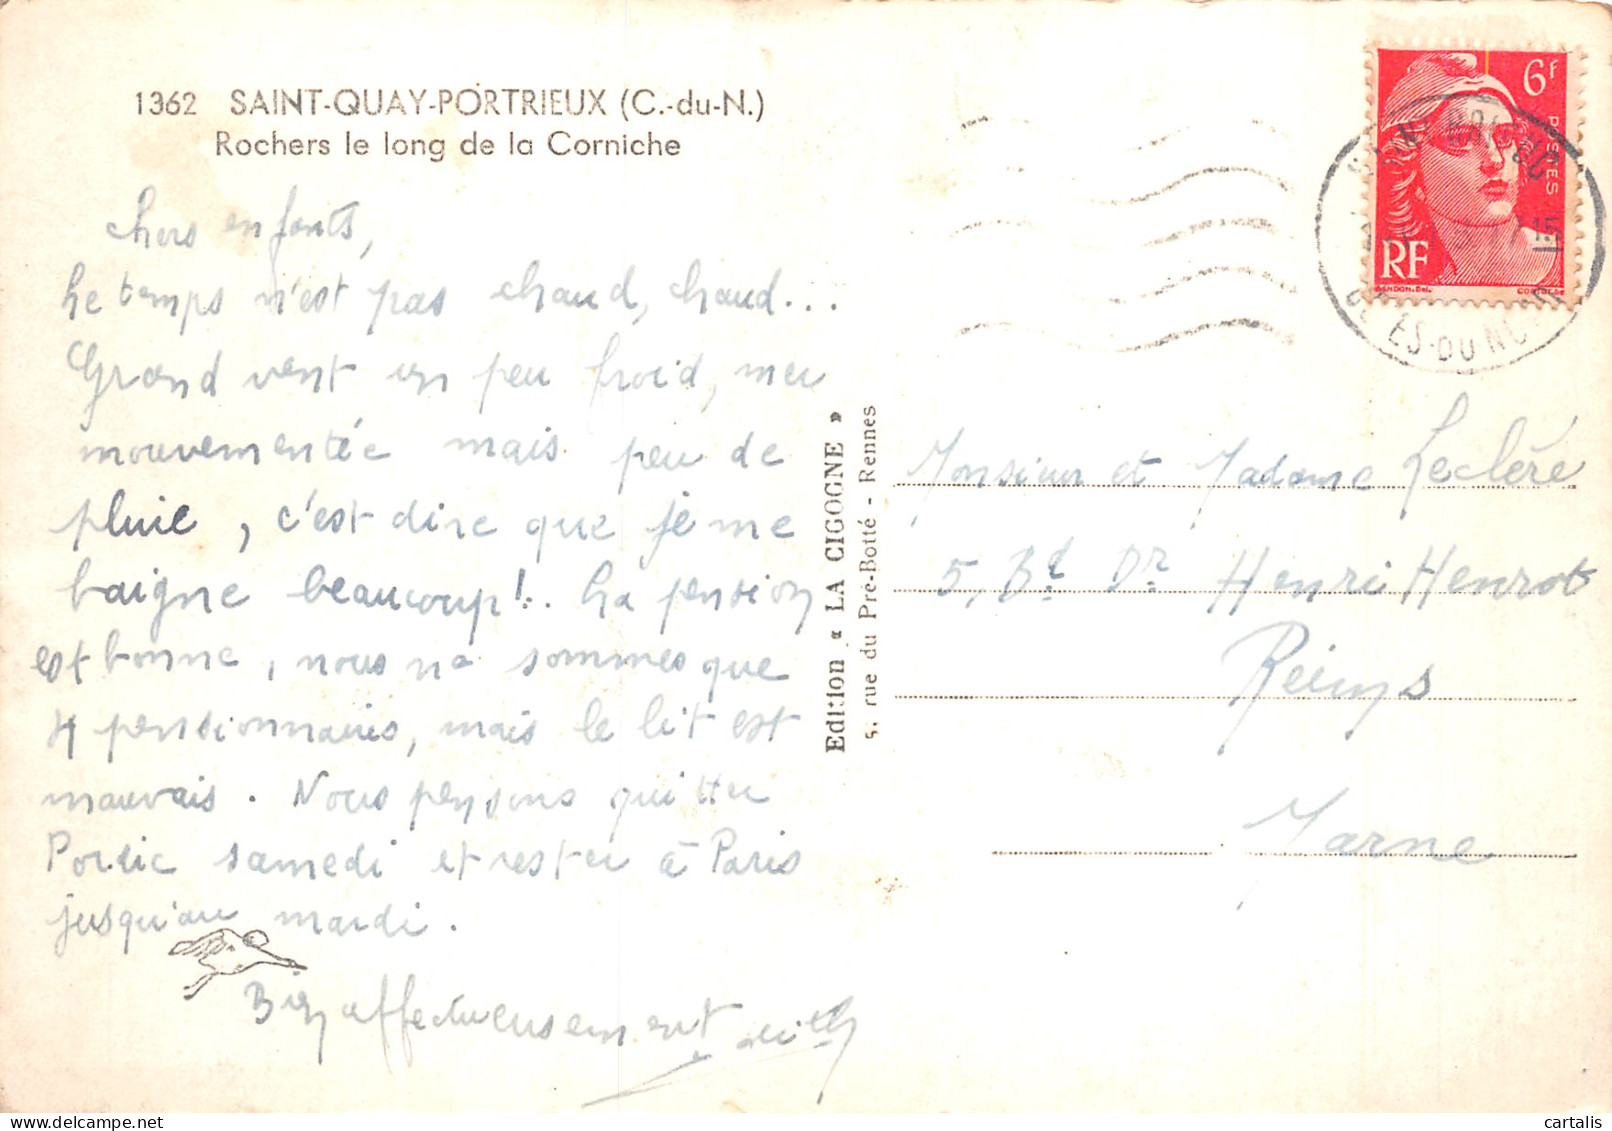 1362 SAINT-QUAY-PORTRIEUX (C.-du-N.)
Rochers le long de la Corniche
Chers enfants,
Le temps n'est pas chaud, chaud...
Grand vent un peu froid, mer
mouvementée mais peu de
pluie, c'est dire que je me
baigne beaucoup!.. La pension
est bonne, nous ne sommes que
4 pensionnaires, mais le lit est
mauvais. Nous pensons quitter
Pordic samedi et rester à Paris
jusqu'au mardi.
Bien affectueusement
Edition « LA CIGOGNE »
5, rue du Pré-Botté - Rennes
6f
POSTES
RF
GANDON. Del.
SAINT BRIEUC
15
COTES-DU-NORD
Monsieur et Madame Leclère
5, Bd Dr Henri Henrot
Reims
Marne
cartalis